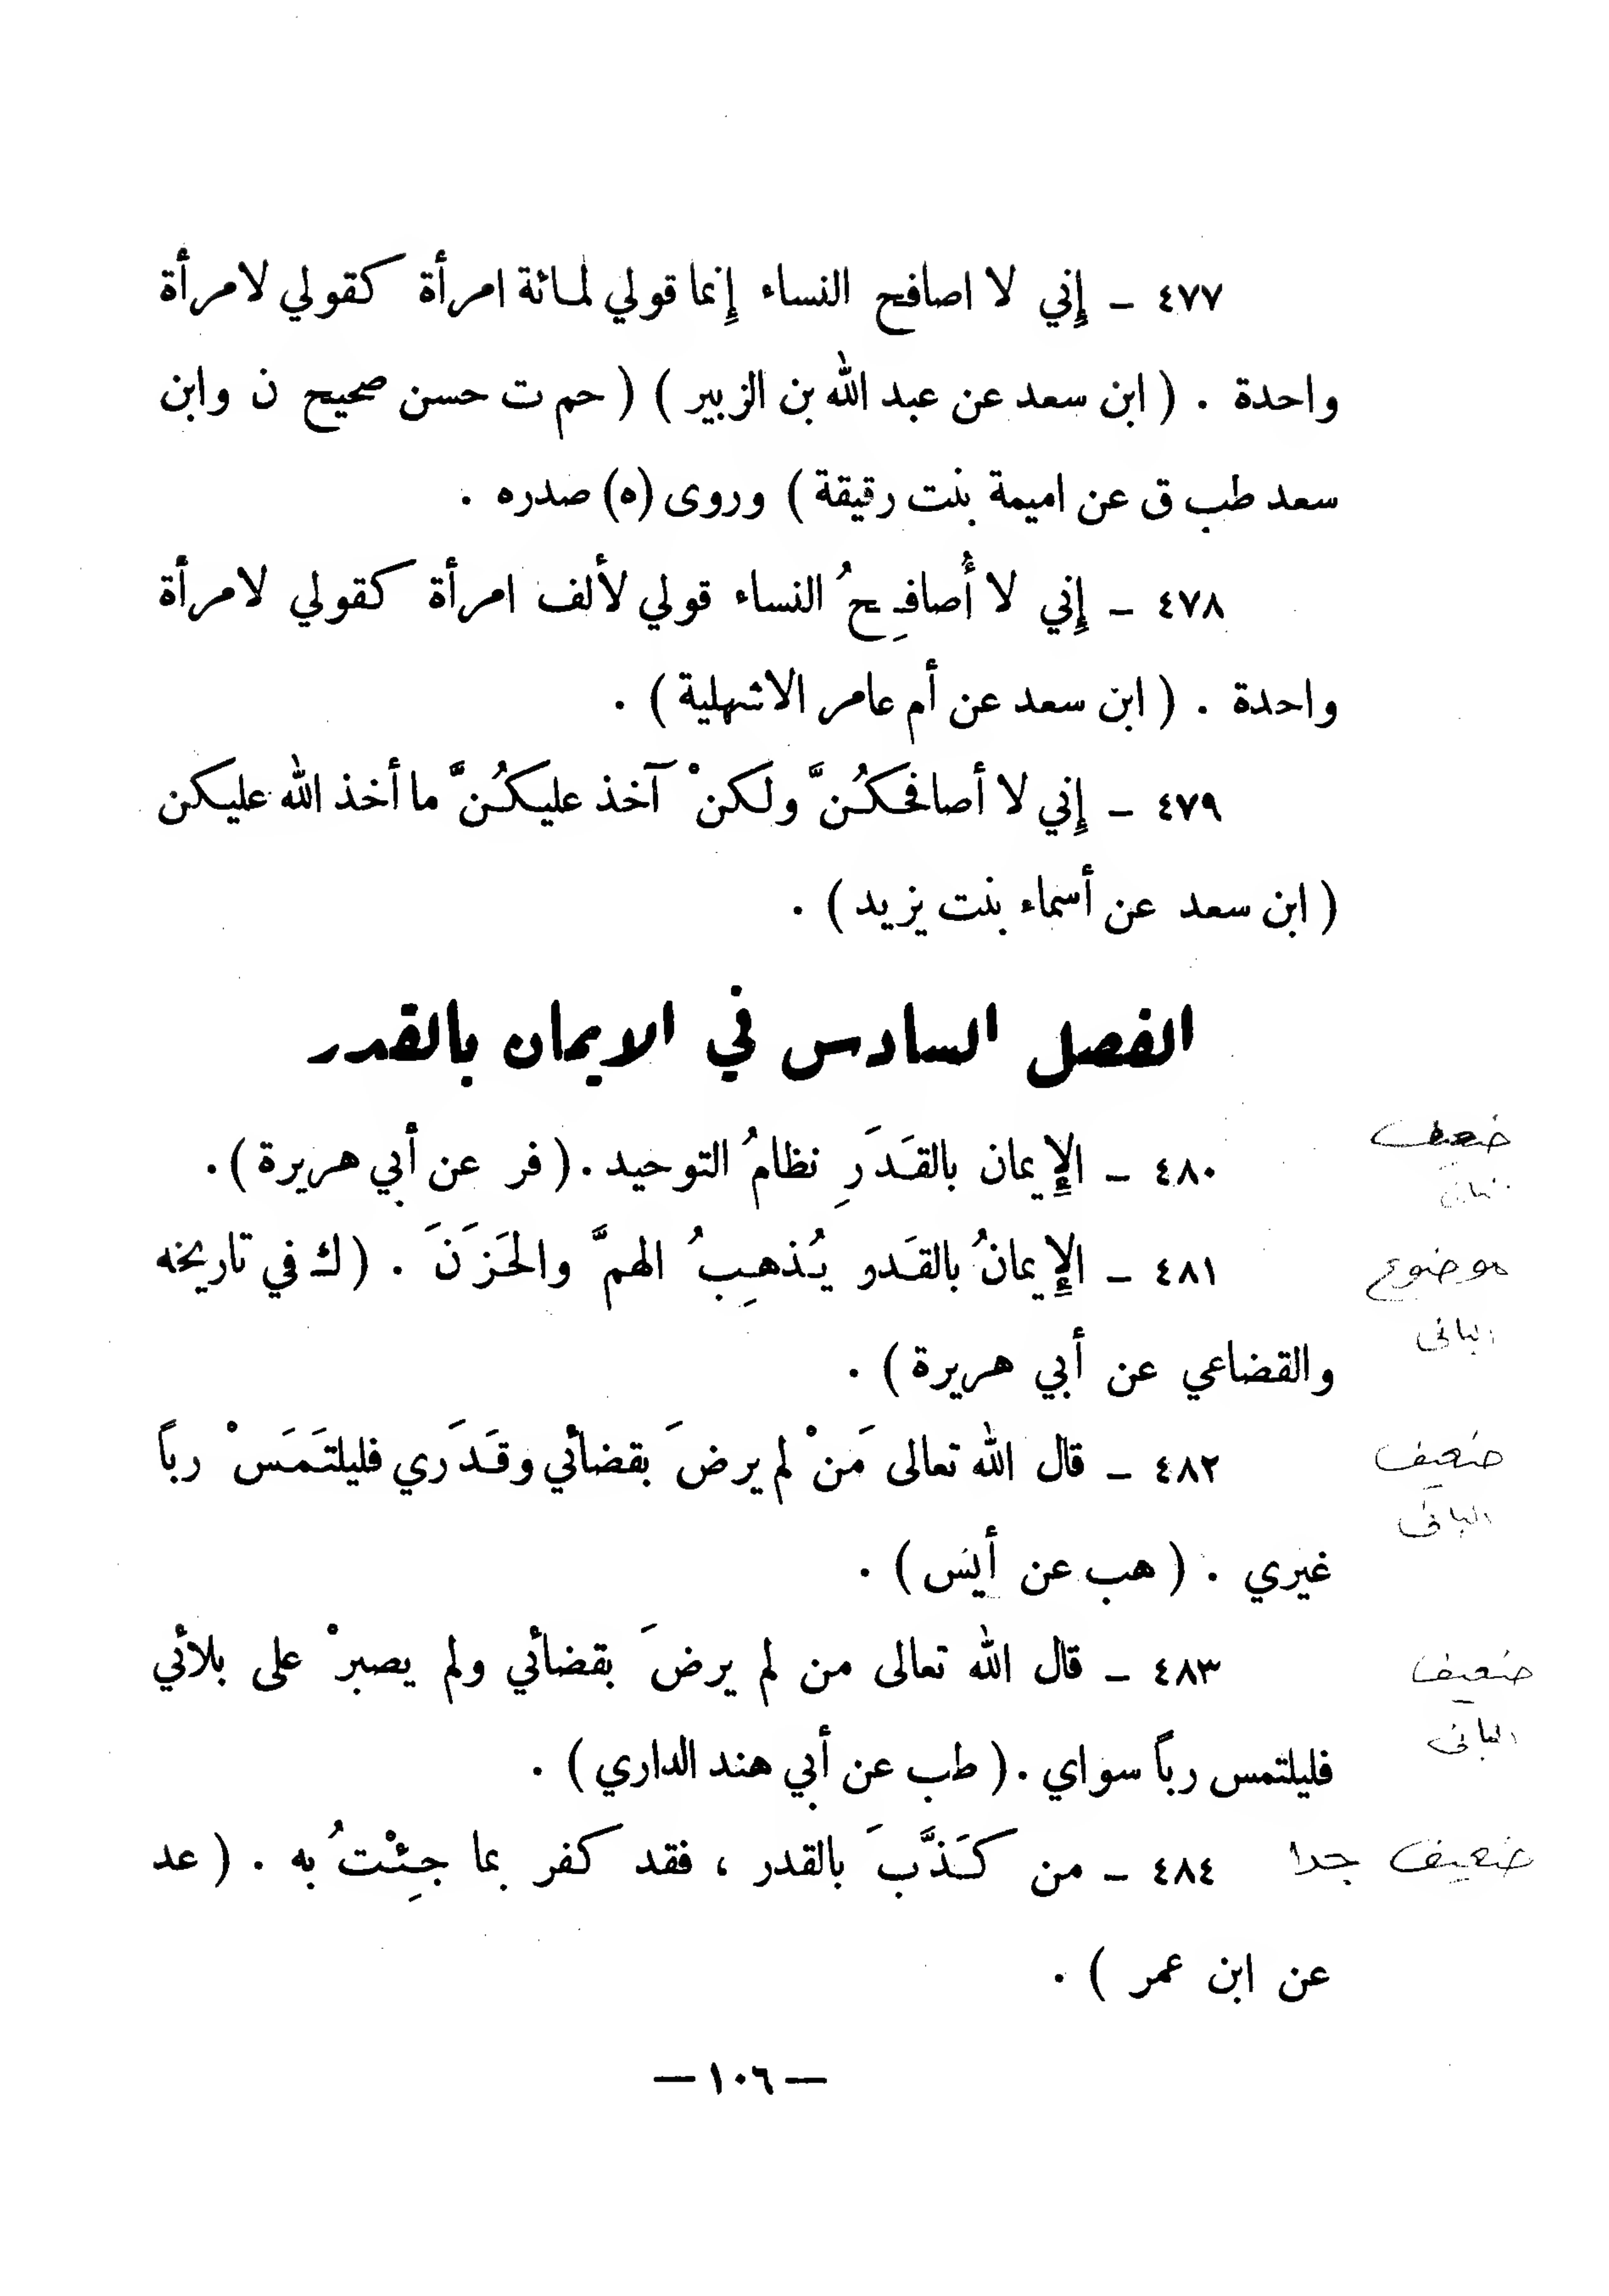 ٤٧٧ ـ إِني لا اصافح النساء إِنما قولي لمائة امرأة كقولي لامرأة
واحدة . ( ابن سعد عن عبد الله بن الزبير ) ( حم ت حسن صحيح ن وابن
سعد طب ق عن اميمة بنت رقيقة ) وروى (ه) صدره .
٤٧٨ ـ إِني لا أُصافِحُ النساء قولي لألف امرأة كقولي لامرأة
واحدة . ( ابن سعد عن أم عامر الاشهلية ) .
٤٧٩ ـ إِني لا أصافحكُنَّ ولكنْ آخذ عليكُنَّ ما أخذ الله عليكن
( ابن سعد عن أسماء بنت يزيد ) .
الفصل السادس في الايمان بالقدر
٤٨٠ ـ الإِيمان بالقَدَرِ نظامُ التوحيد . ( فر عن أبي هريرة ) .
ضعيف
٤٨١ ـ الإِيمانُ بالقَدر يُذهِبُ الهمَّ والحَزَنَ . ( ك في تاريخه
موضوع
البانى
والقضاعي عن أبي هريرة ) .
٤٨٢ ـ قال الله تعالى مَنْ لم يرضَ بقضائي وقَدَري فليلتَمَسْ رباً
ضعيف
البانى
غيري . ( هب عن أنس ) .
٤٨٣ ـ قال الله تعالى من لم يرضَ بقضائي ولم يصبرْ على بلائي
ضعيف
البانى
فليلتمس رباً سواي . ( طب عن أبي هند الداري ) .
٤٨٤ ـ من كَذَّبَ بالقدر ، فقد كفر بما جِئْتُ به . ( عد
ضعيف جدا
عن ابن عمر ) .
— ١٠٦ —